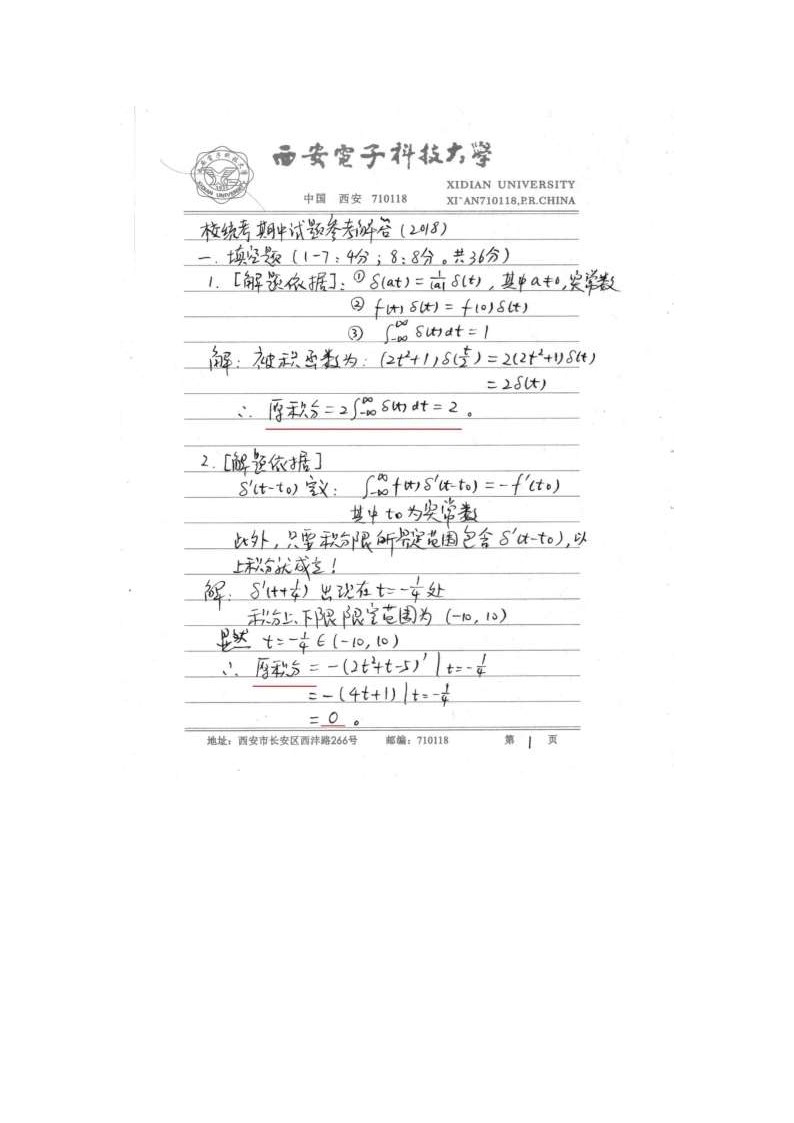 西安電子科技大學
XIDIAN UNIVERSITY
中国 西安 710118 XI`AN710118,P.R.CHINA
校统考期中试题参考解答(2018)
一. 填空题(1-7:4分;8:8分。共36分)
1.[解题依据]:① δ(at)=1/|a| δ(t),其中a≠0,实常数
② f(t)δ(t)=f(0)δ(t)
③ ∫_{-∞}^{∞} δ(t)dt=1
解:被积函数为:(2t²+1)δ(t/2)=2(2t²+1)δ(t)
=2δ(t)
∴ 原积分=2∫_{-∞}^{∞} δ(t)dt=2。
2.[解题依据]
δ'(t-t₀)定义: ∫_{-∞}^{∞} f(t)δ'(t-t₀)=-f'(t₀)
其中t₀为实常数
此外,只要积分限所界定范围包含δ'(t-t₀),以
上积分就成立!
解:δ'(t+1/4)出现在t=-1/4处
积分上、下限限定范围为(-10,10)
显然 t=-1/4∈(-10,10)
∴ 原积分=-(2t²+t-5)'|t=-1/4
=-(4t+1)|t=-1/4
=0。
地址:西安市长安区西沣路266号 邮编:710118 第 1 页